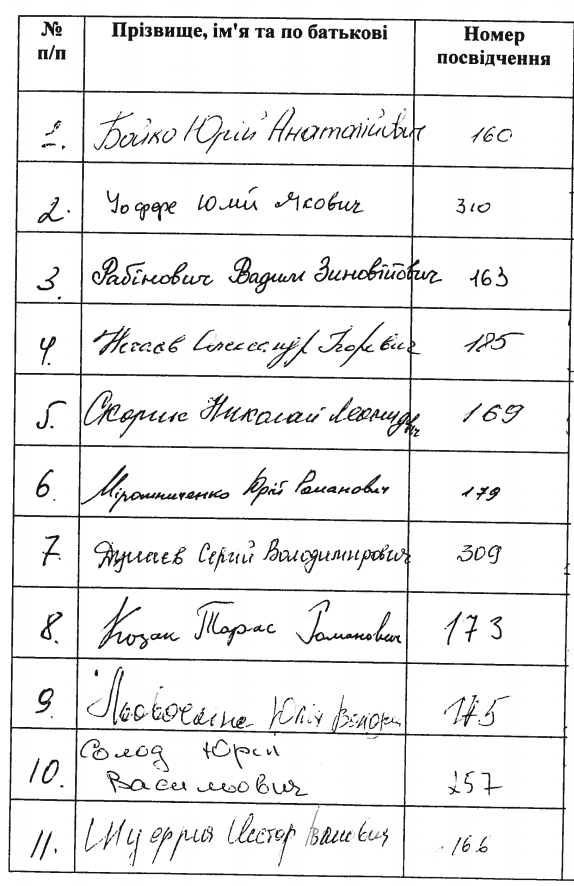 № Прізвище, ім'я та по батькові Номер
п/п посвідчення
1. Бойко Юрій Анатолійович 160
2. Іоффе Юлій Якович 310
3. Рабінович Вадим Зиновійович 163
4. Нечаєв Олександр Ігорович 185
5. Скорик Николай Леонидович 169
6. Мірошниченко Юрій Романович 179
7. Дунаєв Сергій Володимирович 309
8. Козак Тарас Романович 173
9. Льовочкіна Юлія 175
10. Солод Юрій
Васильович 257
11. Шуфрич Нестор Іванович 166